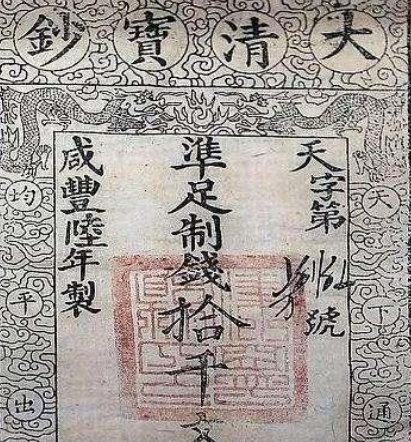 大清寶鈔
天字第
號
準足制錢拾千文
咸豐陸年製
天下通
均平出